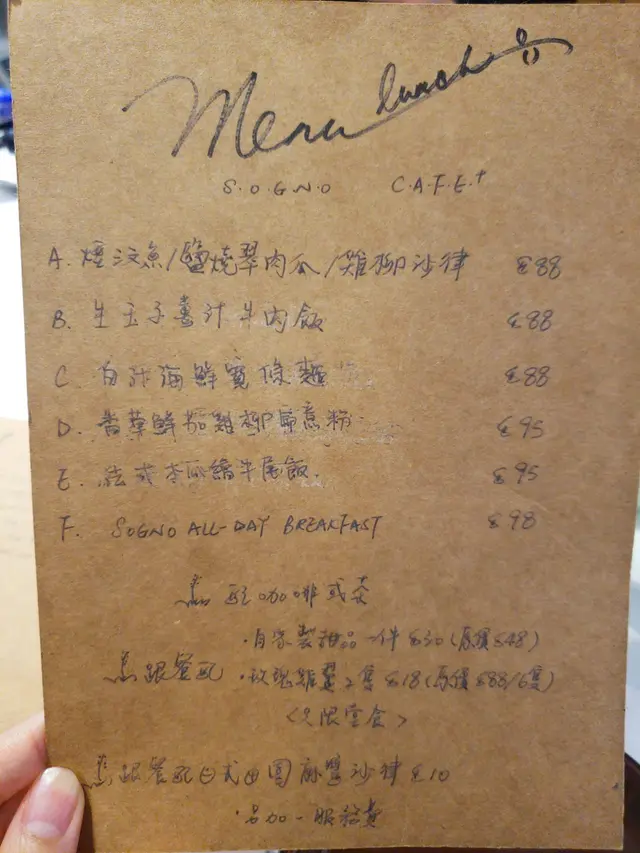 Menu lunch
S.O.G.N.O C.A.F.E.+
A. 煙三文魚/鹽燒翠肉瓜/雞柳沙律 $88
B. 生玉子薑汁牛肉飯 $88
C. 白汁海鮮寬條麵 $88
D. 香草鮮茄雞柳扁意粉 $95
E. 法式 燴牛尾飯. $95
F. SOGNO ALL-DAY BREAKFAST $98
配咖啡或茶
·自家製甜品一件 $30 (原價 $48)
跟餐配 ·玫瑰雞翼2隻 $18 (原價 $88/6隻)
<只限堂食>
跟餐配日式田園麻醬沙律 $10
·另加一服務費